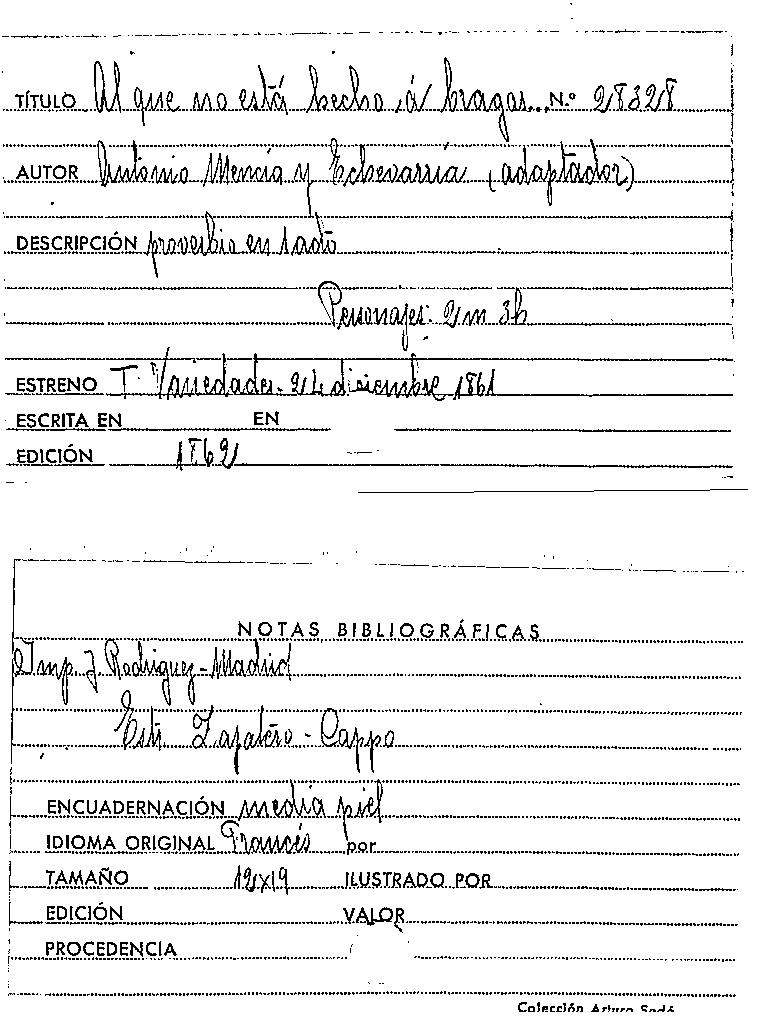 TÍTULO Al que no está hecho á bragas... N.º 28328
AUTOR Antonio Mencía y Echevarría (adaptador)
DESCRIPCIÓN proverbio en 1 acto
Personajes: 2 m 3h
ESTRENO T. Variedades. 24 diciembre 1861
ESCRITA EN EN
EDICIÓN 1862
NOTAS BIBLIOGRÁFICAS
Imp. J. Rodriguez-Madrid
Estr. Zapatero-Cappo
ENCUADERNACIÓN media piel
IDIOMA ORIGINAL Francés por
TAMAÑO 12x19 ILUSTRADO POR
EDICIÓN VALOR
PROCEDENCIA
Colección Arturo Sedó